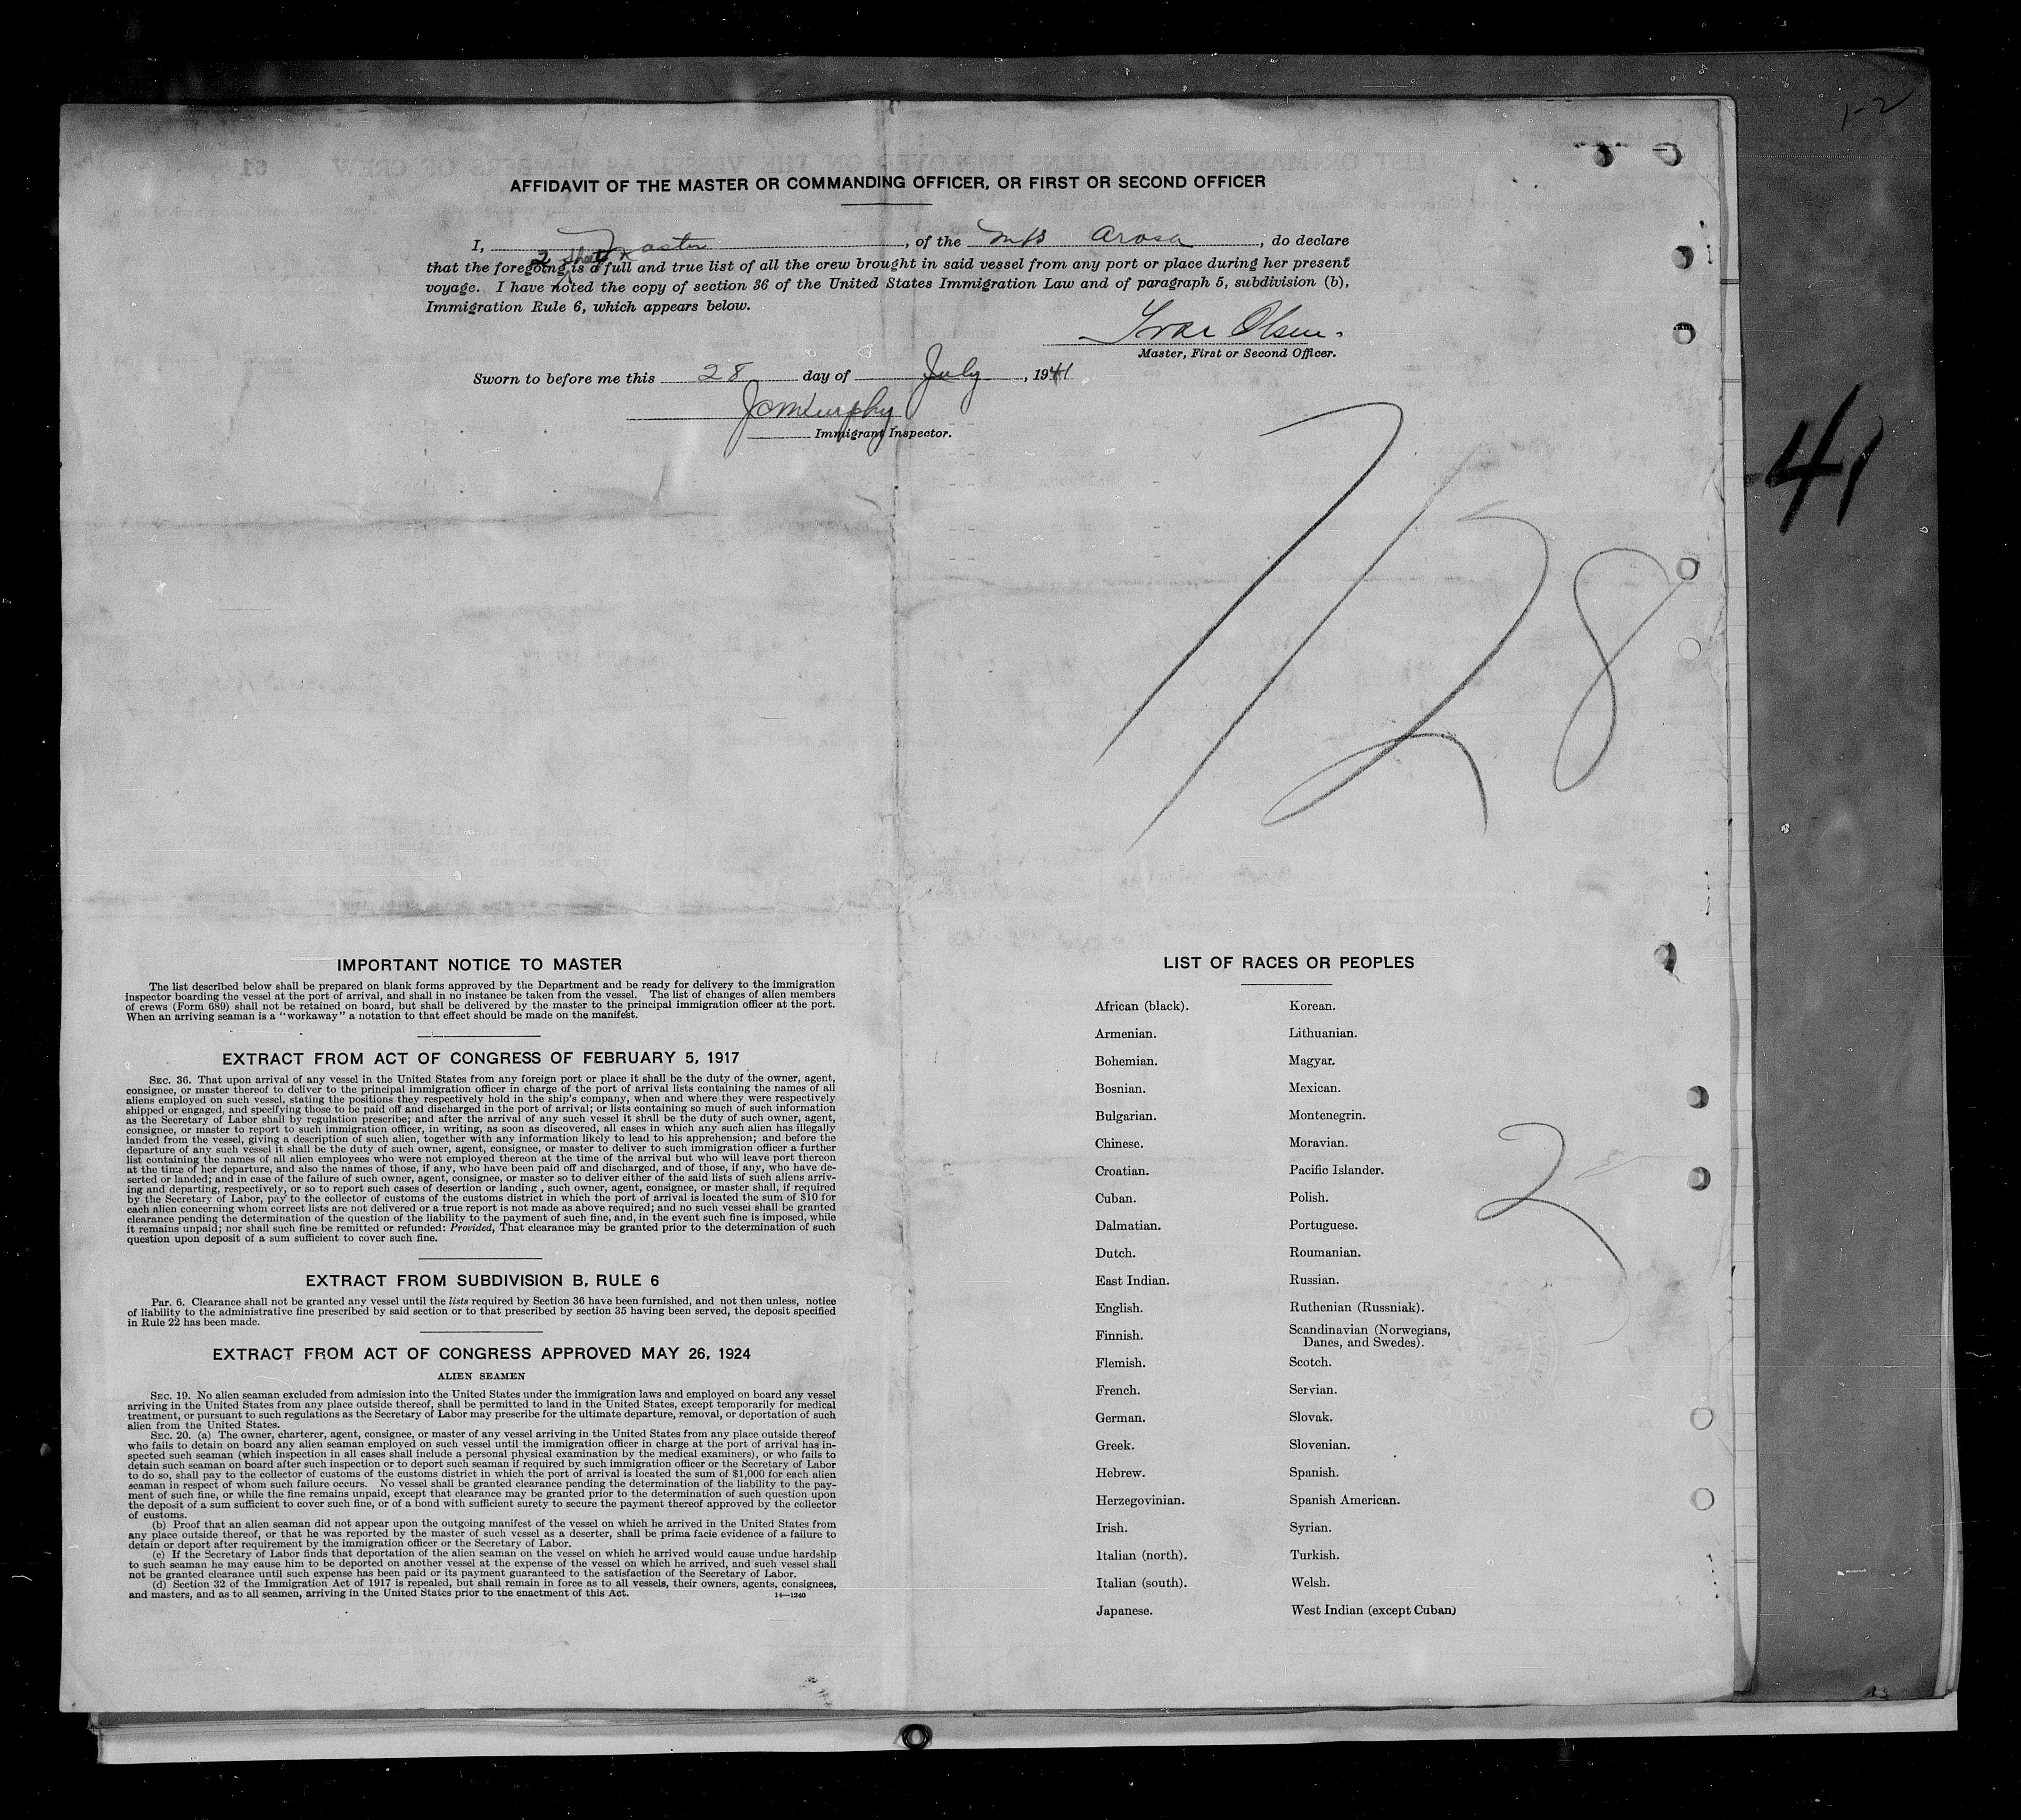 1-2
AFFIDAVIT OF THE MASTER OR COMMANDING OFFICER, OR FIRST OR SECOND OFFICER
I, Master, of the M/S Arosa, do declare
2 sheets
that the foregoing is a full and true list of all the crew brought in said vessel from any port or place during her present
voyage. I have noted the copy of section 36 of the United States Immigration Law and of paragraph 5, subdivision (b),
Immigration Rule 6, which appears below.
Ivar Olsen.
Master, First or Second Officer.
Sworn to before me this 28 day of July, 1941
J C Murphy
Immigrant Inspector.
41
7/28
IMPORTANT NOTICE TO MASTER
The list described below shall be prepared on blank forms approved by the Department and be ready for delivery to the immigration
inspector boarding the vessel at the port of arrival, and shall in no instance be taken from the vessel. The list of changes of alien members
of crews (Form 689) shall not be retained on board, but shall be delivered by the master to the principal immigration officer at the port.
When an arriving seaman is a "workaway" a notation to that effect should be made on the manifest.
EXTRACT FROM ACT OF CONGRESS OF FEBRUARY 5, 1917
SEC. 36. That upon arrival of any vessel in the United States from any foreign port or place it shall be the duty of the owner, agent,
consignee, or master thereof to deliver to the principal immigration officer in charge of the port of arrival lists containing the names of all
aliens employed on such vessel, stating the positions they respectively hold in the ship's company, when and where they were respectively
shipped or engaged, and specifying those to be paid off and discharged in the port of arrival; or lists containing so much of such information
as the Secretary of Labor shall by regulation prescribe; and after the arrival of any such vessel it shall be the duty of such owner, agent,
consignee, or master to report to such immigration officer, in writing, as soon as discovered, all cases in which any such alien has illegally
landed from the vessel, giving a description of such alien, together with any information likely to lead to his apprehension; and before the
departure of any such vessel it shall be the duty of such owner, agent, consignee, or master to deliver to such immigration officer a further
list containing the names of all alien employees who were not employed thereon at the time of the arrival but who will leave port thereon
at the time of her departure, and also the names of those, if any, who have been paid off and discharged, and of those, if any, who have de-
serted or landed; and in case of the failure of such owner, agent, consignee, or master so to deliver either of the said lists of such aliens arriv-
ing and departing, respectively, or so to report such cases of desertion or landing , such owner, agent, consignee, or master shall, if required
by the Secretary of Labor, pay to the collector of customs of the customs district in which the port of arrival is located the sum of $10 for
each alien concerning whom correct lists are not delivered or a true report is not made as above required; and no such vessel shall be granted
clearance pending the determination of the question of the liability to the payment of such fine, and, in the event such fine is imposed, while
it remains unpaid; nor shall such fine be remitted or refunded: Provided, That clearance may be granted prior to the determination of such
question upon deposit of a sum sufficient to cover such fine.
EXTRACT FROM SUBDIVISION B, RULE 6
PAR. 6. Clearance shall not be granted any vessel until the lists required by Section 36 have been furnished, and not then unless, notice
of liability to the administrative fine prescribed by said section or to that prescribed by section 35 having been served, the deposit specified
in Rule 22 has been made.
EXTRACT FROM ACT OF CONGRESS APPROVED MAY 26, 1924
ALIEN SEAMEN
SEC. 19. No alien seaman excluded from admission into the United States under the immigration laws and employed on board any vessel
arriving in the United States from any place outside thereof, shall be permitted to land in the United States, except temporarily for medical
treatment, or pursuant to such regulations as the Secretary of Labor may prescribe for the ultimate departure, removal, or deportation of such
alien from the United States.
SEC. 20. (a) The owner, charterer, agent, consignee, or master of any vessel arriving in the United States from any place outside thereof
who fails to detain on board any alien seaman employed on such vessel until the immigration officer in charge at the port of arrival has in-
spected such seaman (which inspection in all cases shall include a personal physical examination by the medical examiners), or who fails to
detain such seaman on board after such inspection or to deport such seaman if required by such immigration officer or the Secretary of Labor
to do so, shall pay to the collector of customs of the customs district in which the port of arrival is located the sum of $1,000 for each alien
seaman in respect of whom such failure occurs. No vessel shall be granted clearance pending the determination of the liability to the pay-
ment of such fine, or while the fine remains unpaid, except that clearance may be granted prior to the determination of such question upon
the deposit of a sum sufficient to cover such fine, or of a bond with sufficient surety to secure the payment thereof approved by the collector
of customs.
(b) Proof that an alien seaman did not appear upon the outgoing manifest of the vessel on which he arrived in the United States from
any place outside thereof, or that he was reported by the master of such vessel as a deserter, shall be prima facie evidence of a failure to
detain or deport after requirement by the immigration officer or the Secretary of Labor.
(c) If the Secretary of Labor finds that deportation of the alien seaman on the vessel on which he arrived would cause undue hardship
to such seaman he may cause him to be deported on another vessel at the expense of the vessel on which he arrived, and such vessel shall
not be granted clearance until such expense has been paid or its payment guaranteed to the satisfaction of the Secretary of Labor.
(d) Section 32 of the Immigration Act of 1917 is repealed, but shall remain in force as to all vessels, their owners, agents, consignees,
and masters, and as to all seamen, arriving in the United States prior to the enactment of this Act.
14—1240
LIST OF RACES OR PEOPLES
African (black).
Armenian.
Bohemian.
Bosnian.
Bulgarian.
Chinese.
Croatian.
Cuban.
Dalmatian.
Dutch.
East Indian.
English.
Finnish.
Flemish.
French.
German.
Greek.
Hebrew.
Herzegovinian.
Irish.
Italian (north).
Italian (south).
Japanese.
Korean.
Lithuanian.
Magyar.
Mexican.
Montenegrin.
Moravian.
Pacific Islander.
Polish.
Portuguese.
Roumanian.
Russian.
Ruthenian (Russniak).
Scandinavian (Norwegians,
Danes, and Swedes).
Scotch.
Servian.
Slovak.
Slovenian.
Spanish.
Spanish American.
Syrian.
Turkish.
Welsh.
West Indian (except Cuban)
2